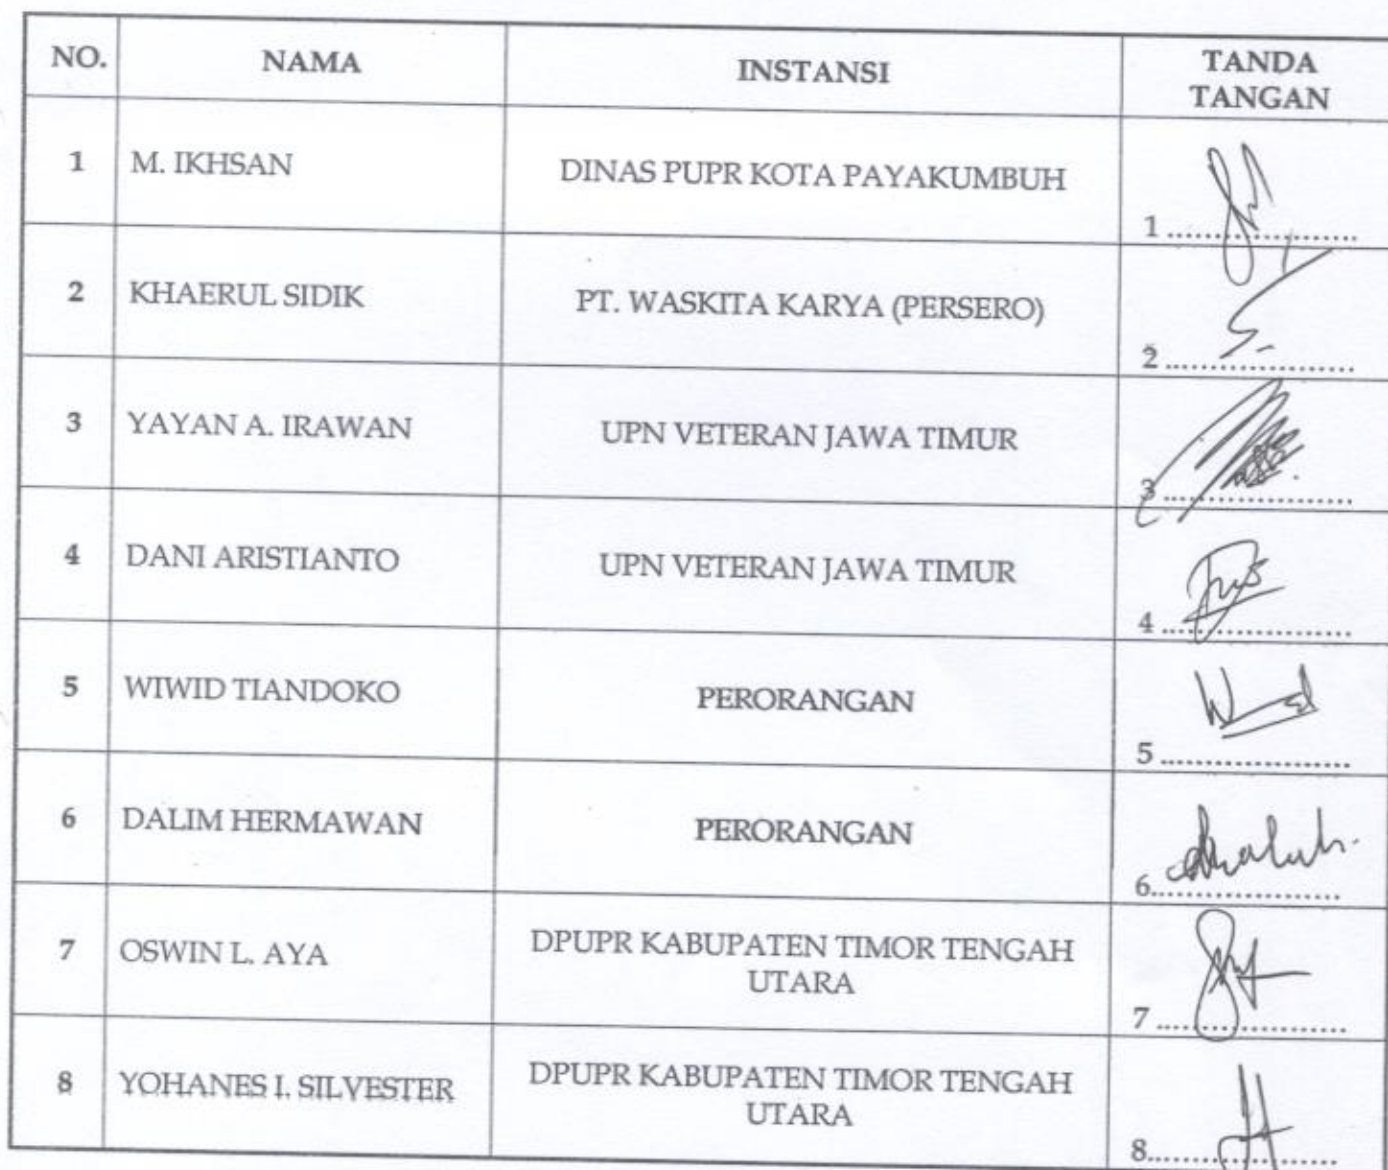 NO. NAMA INSTANSI TANDA TANGAN
1 M. IKHSAN DINAS PUPR KOTA PAYAKUMBUH 1 ....................
2 KHAERUL SIDIK PT. WASKITA KARYA (PERSERO) 2 ....................
3 YAYAN A. IRAWAN UPN VETERAN JAWA TIMUR 3 ....................
4 DANI ARISTIANTO UPN VETERAN JAWA TIMUR 4 ....................
5 WIWID TIANDOKO PERORANGAN 5 ....................
6 DALIM HERMAWAN PERORANGAN 6....................
7 OSWIN L. AYA DPUPR KABUPATEN TIMOR TENGAH UTARA 7 ....................
8 YOHANES I. SILVESTER DPUPR KABUPATEN TIMOR TENGAH UTARA 8....................